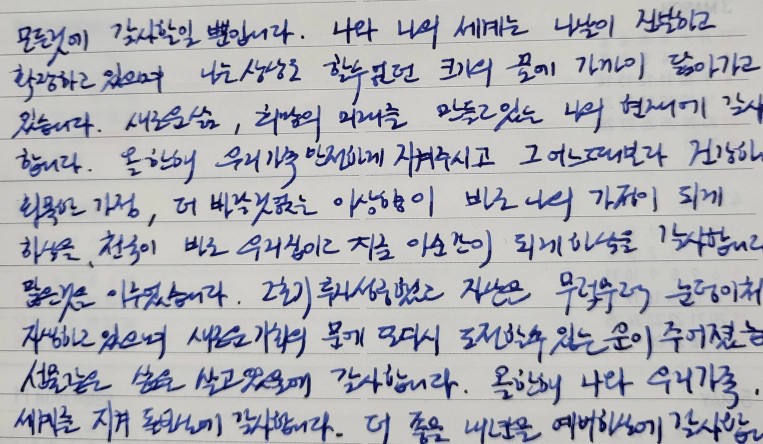 모든것에 감사할일 뿐입니다. 나와 나의 세계는 나날이 진보하고
확장하고 있으며 나는 상상도 할수 없던 크기의 꿈에 가까이 닮아가고
있습니다. 새로운삶, 희망의 미래를 만들고있는 나의 현재에 감사
합니다. 올한해 우리가족 안전하게 지켜주시고 그어느때보다 건강하
화목한 가정, 더 바랄것없는 이상향이 바로 나의 가정이 되게
하심을, 천국이 바로 우리집이고 지금 이순간이 되게하심을 감사합니다
많은것을 이루었습니다. 2호기 투자성공했고 자산은 무럭무럭 눈덩이처
자생하고 있으며 새로운기회의 문에 또다시 도전할수 있는 운이 주어졌
선물같은 삶을 살고있음에 감사합니다. 올한해 나와 우리가족,
세계를 지켜 감사합니다. 더 좋은 내년을 예비하심에 감사합